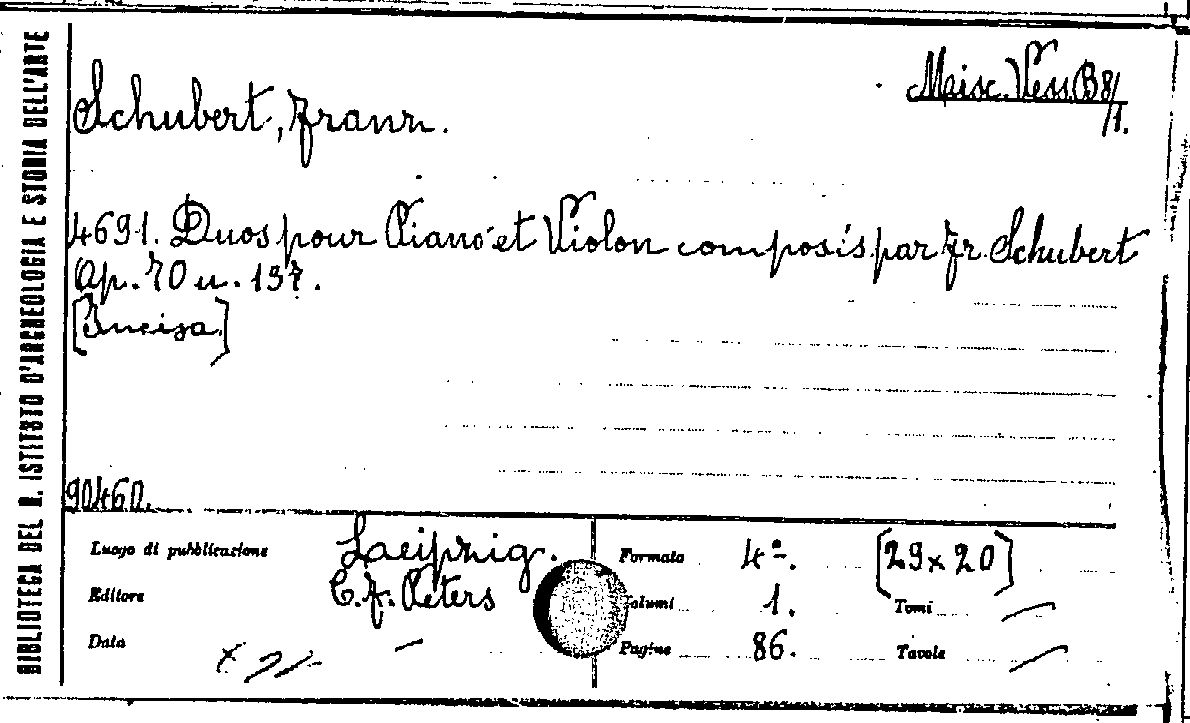 BIBLIOTECA DEL R. ISTITUTO D'ARCHEOLOGIA E STORIA DELL'ARTE
Misc. Vess. B 8/
/1.
Schubert, Franz.
4691. Duos pour Piano et Violon composés par Fr. Schubert
Op. 70 u. 137.
[Incisa]
90460.
Luogo di pubblicazione Laeipzig.
Editore C. F. Peters
Data —
Formato 4º. [29x20]
Volumi 1. Tomi —
Pagine 86. Tavole —